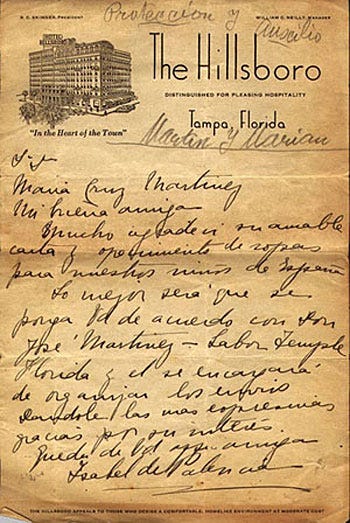 R. C. SKINNER, PRESIDENT
WILLIAM C. REILLY, MANAGER
Protección y
Auxilio
HOTEL HILLSBORO
The Hillsboro
DISTINGUISHED FOR PLEASING HOSPITALITY
"In the Heart of the Town"
Tampa, Florida
Martin y Marian
Maria Cruz Martinez
Mi buena amiga
Mucho agradecí su amable
carta y ofrecimiento de ropas
para nuestros niños de España
Lo mejor será que se
ponga Vd de acuerdo con Don
José Martinez – Labor Temple
Florida y el se encargará
de organizar los envios
Dandole las mas expresivas
gracias por su interés.
Queda de Vd amiga
Isabel de Palencia
THE HILLSBORO APPEALS TO THOSE WHO DESIRE A COMFORTABLE, HOMELIKE ENVIRONMENT AT MODERATE COST